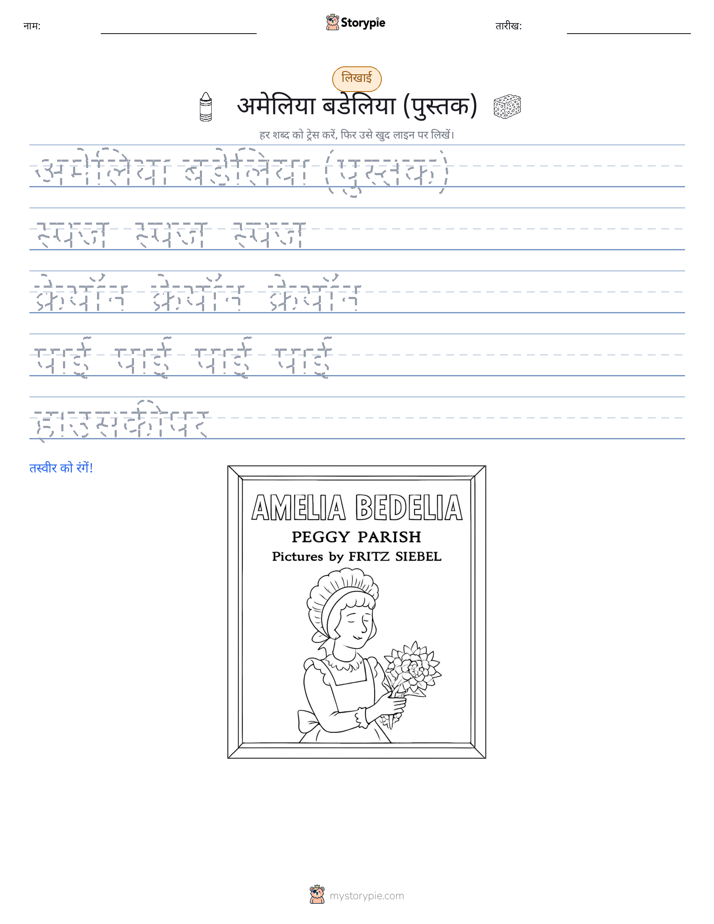 नाम:
Storypie
तारीख:
लिखाई
अमेलिया बडेलिया (पुस्तक)
हर शब्द को ट्रेस करें, फिर उसे खुद लाइन पर लिखें।
अमेलिया बडेलिया (पुस्तक)
स्पंज स्पंज स्पंज
क्रेयॉन क्रेयॉन क्रेयॉन
पाई पाई पाई पाई
हाउसकीपर
तस्वीर को रंगें!
AMELIA BEDELIA
PEGGY PARISH
Pictures by FRITZ SIEBEL
mystorypie.com